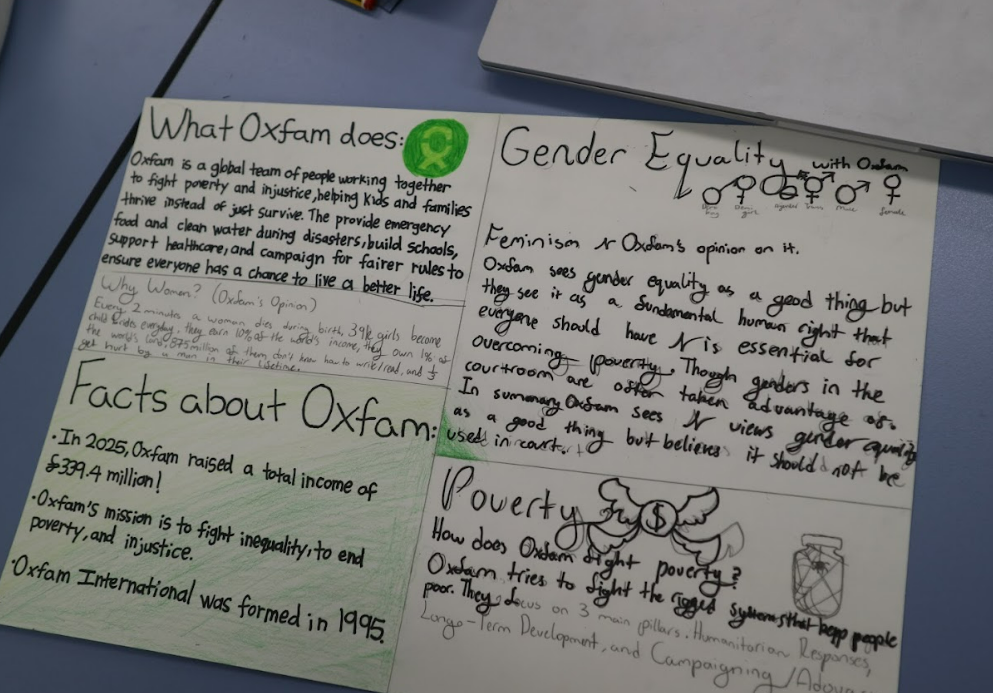 What Oxfam does:
Oxfam is a global team of people working together
to fight poverty and injustice, helping kids and families
thrive instead of just survive. The provide emergency
food and clean water during disasters, build schools,
support healthcare, and campaign for fairer rules to
ensure everyone has a chance to live a better life.
Why Women? (Oxfam's Opinion)
Every 2 minutes a woman dies during birth, girls become
child brides everyday, they earn 10% of the world's income, they own 1% of
the world's land, 875 million of them don't know how to write/read, and 1/3
get hurt by a man in their lifetime.
Facts about Oxfam:
· In 2025, Oxfam raised a total income of
£339.4 million!
· Oxfam's mission is to fight inequality, to end
poverty, and injustice.
· Oxfam International was formed in 1995.
Gender Equality with Oxfam
agender female
Feminism & Oxfam's opinion on it.
Oxfam sees gender equality as a good thing but
they see it as a fundamental human right that
everyone should have is essential for
overcoming poverty. Though genders in the
courtroom are often taken advantage of.
In summary Oxfam sees views gender equality
as a good thing but believes it should not be
used in court.
Poverty
$
How does Oxfam fight poverty?
Oxfam tries to fight the rigged systems that keep people
poor. They focus on 3 main pillars. Humanitarian Responses,
Long-Term Development, and Campaigning /